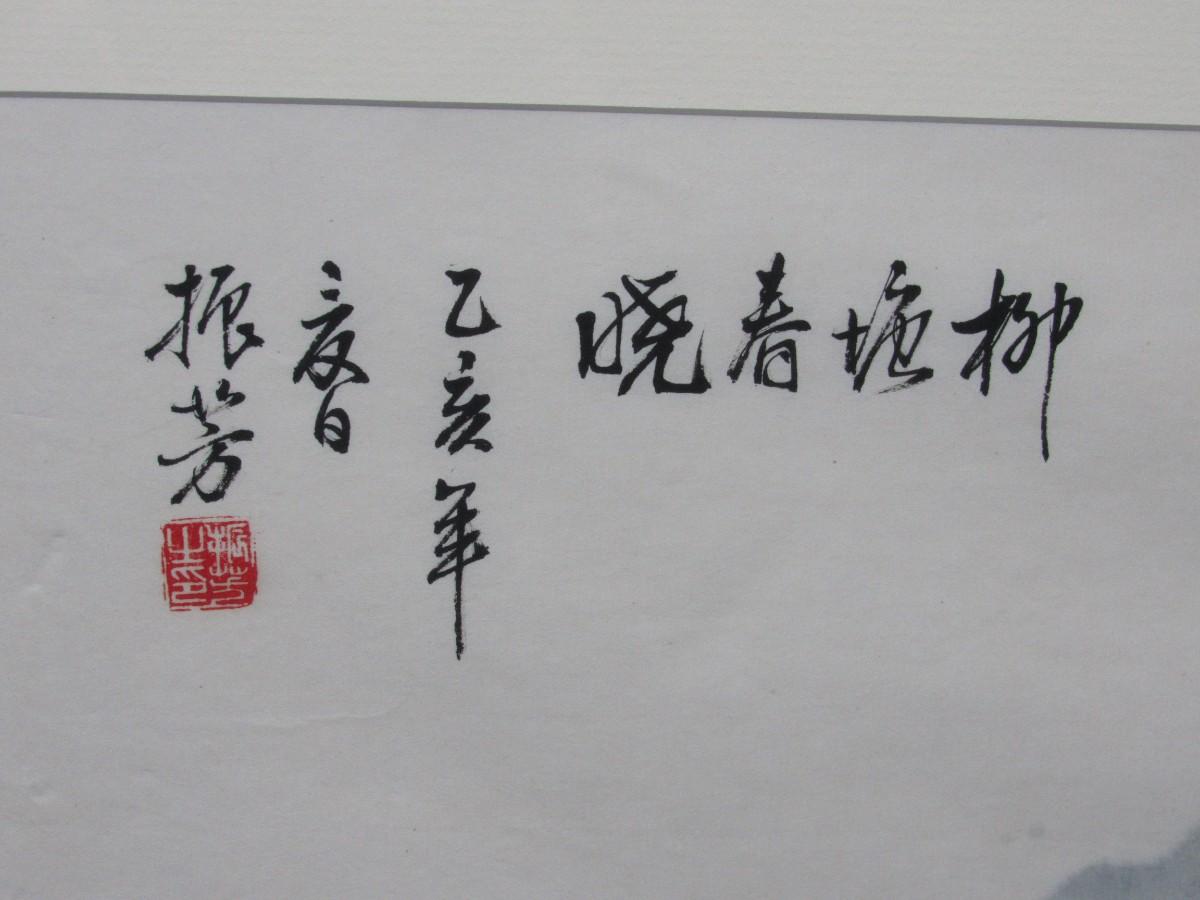 柳塘春晓
乙亥年
夏日
振芳
振芳之印